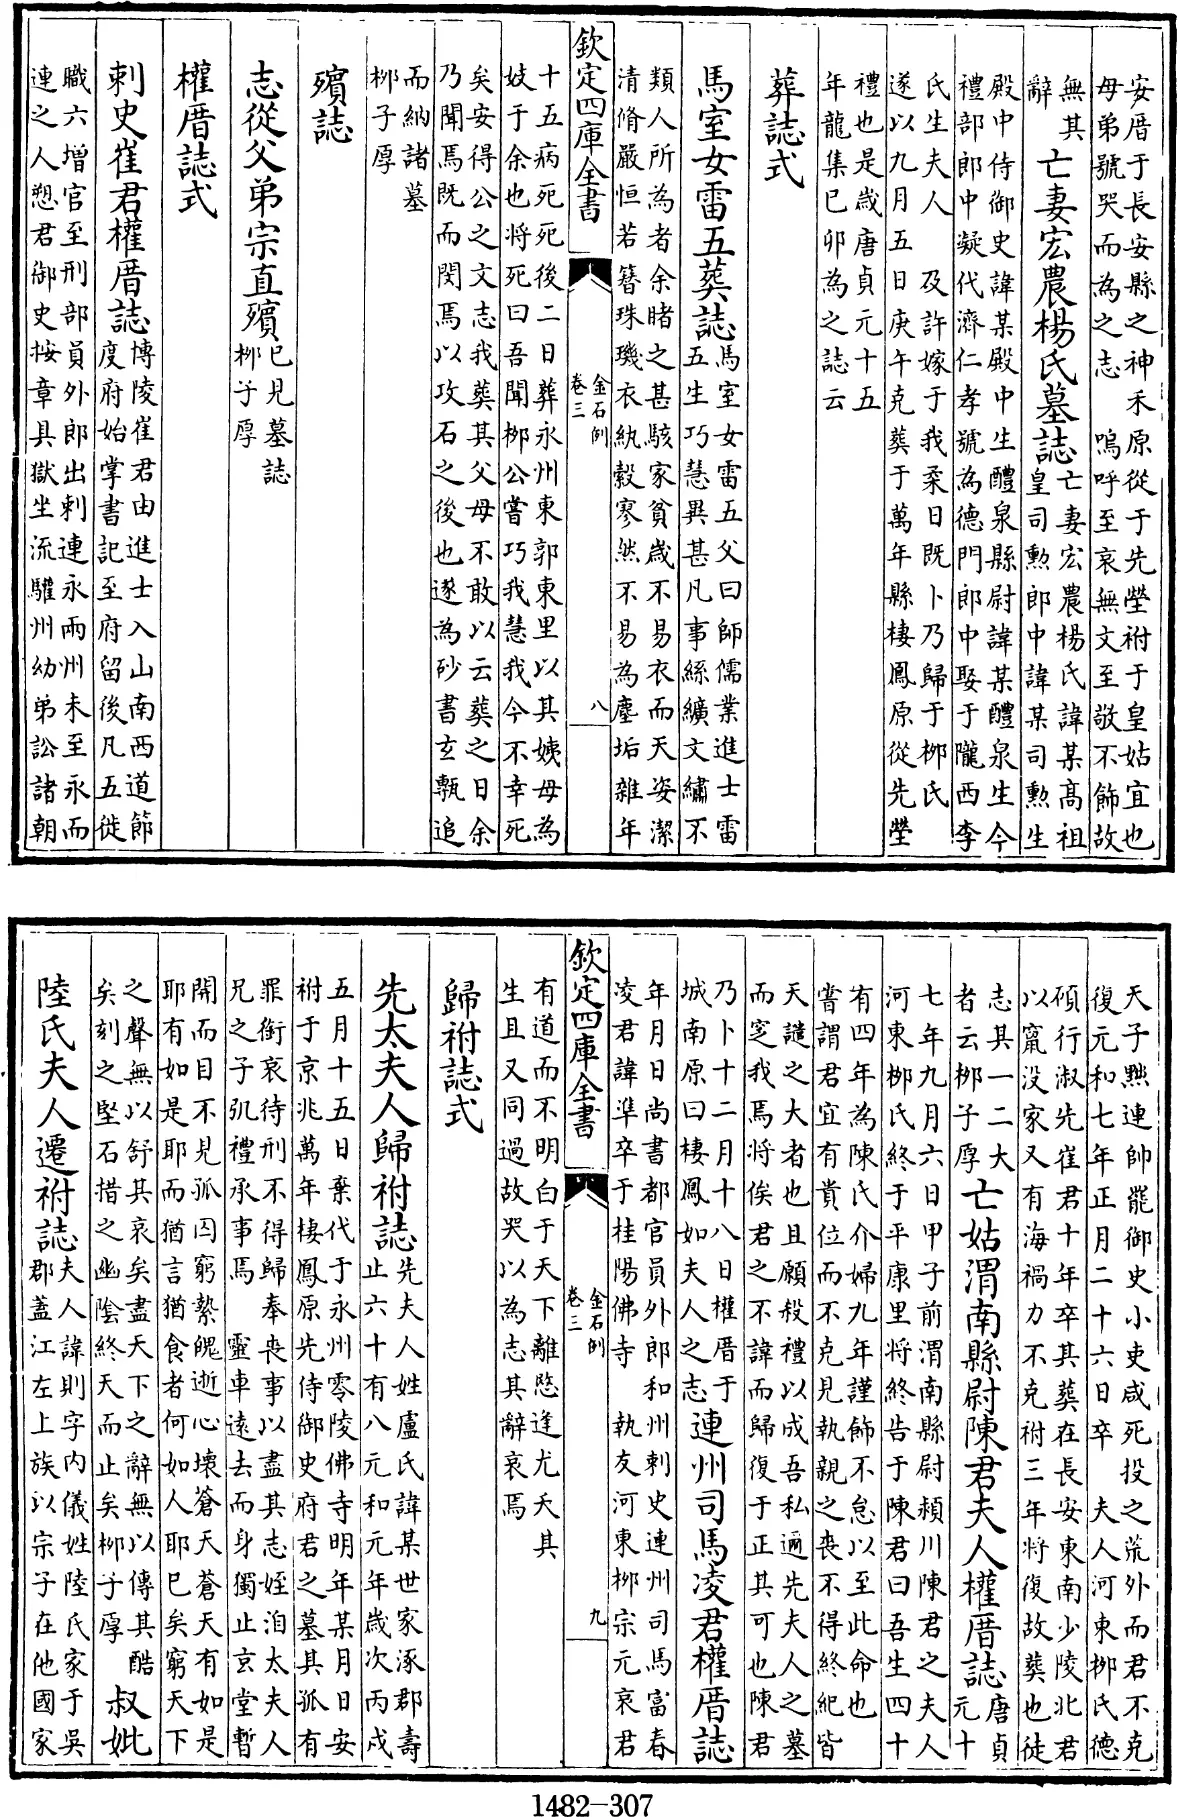 安厝于長安縣之神禾原從于先塋祔于皇姑宜也
母弟號哭而為之志　嗚呼至哀無文至敬不飾故
無其
辭
亡妻宏農楊氏墓誌
亡妻宏農楊氏諱某髙祖
皇司勲郎中諱某司勲生
殿中侍御史諱某殿中生醴泉縣尉諱某醴泉生今
禮部郎中凝代濟仁孝號為德門郎中娶于隴西李
氏生夫人　及許嫁于我柔日既卜乃歸于柳氏
遂以九月五日庚午克葬于萬年縣棲鳳原從先塋
禮也是嵗唐貞元十五
年龍集已卯為之誌云
葬誌式
馬室女雷五葬誌
馬室女雷五父曰師儒業進士雷
五生巧慧異甚凡事絲纊文繡不
類人所為者余睹之甚駭家貧嵗不易衣而天姿潔
清脩嚴恒若簪珠璣衣紈縠寥然不易為塵垢雜年
欽定四庫全書
金石例
卷三
八
十五病死死後二日葬永州東郭東里以其姨母為
妓于余也将死曰吾聞柳公嘗巧我慧我今不幸死
矣安得公之文志我葬其父母不敢以云葬之日余
乃聞焉既而閔焉以攻石之後也遂為砂書玄甎追
而納諸墓
柳子厚
殯誌
志從父弟宗直殯
已見墓誌
柳子厚
權厝誌式
刺史崔君權厝誌
博陵崔君由進士入山南西道節
度府始掌書記至府留後凡五徙
職六增官至刑部員外郎出刺連永兩州未至永而
連之人愬君御史按章具獄坐流驩州幼弟訟諸朝
天子黜連帥罷御史小吏咸死投之荒外而君不克
復元和七年正月二十六日卒　夫人河東柳氏德
碩行淑先崔君十年卒其葬在長安東南少陵北君
以竄没家又有海禍力不克祔三年将復故葬也徒
志其一二大
者云柳子厚
亡姑渭南縣尉陳君夫人權厝誌
唐貞
元十
七年九月六日甲子前渭南縣尉潁川陳君之夫人
河東柳氏終于平康里将終告于陳君曰吾生四十
有四年為陳氏介婦九年謹飾不怠以至此命也
嘗謂君宜有貴位而不克見執親之喪不得終紀皆
天譴之大者也且願殺禮以成吾私邇先夫人之墓
而窆我焉将俟君之不諱而歸復于正其可也陳君
乃卜十二月十八日權厝于
城南原曰棲鳳如夫人之志
連州司馬凌君權厝誌
年月日尚書都官員外郎和州刺史連州司馬富春
凌君諱準卒于桂陽佛寺　執友河東柳宗元哀君
欽定四庫全書
金石例
卷三
九
有道而不明白于天下離愍逢尤夭其
生且又同過故哭以為志其辭哀焉
歸祔誌式
先太夫人歸祔誌
先夫人姓盧氏諱某世家涿郡壽
止六十有八元和元年嵗次丙戌
五月十五日棄代于永州零陵佛寺明年某月日安
祔于京兆萬年棲鳳原先侍御史府君之墓其孤有
罪銜哀待刑不得歸奉喪事以盡其志姪洎太夫人
兄之子弘禮承事焉　靈車逺去而身獨止玄堂暫
開而目不見孤囚窮縶魄逝心壞蒼天蒼天有如是
耶有如是耶而猶言猶食者何如人耶已矣窮天下
之聲無以舒其哀矣盡天下之辭無以傳其酷
矣刻之堅石措之幽陰終天而止矣柳子厚
叔妣
陸氏夫人遷祔誌
夫人諱則字内儀姓陸氏家于吳
郡蓋江左上族以宗子在他國家
1482-307